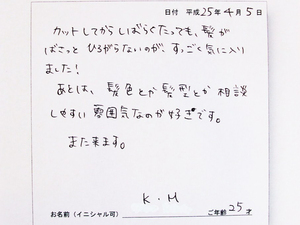 日付 平成25年4月5日
カットしてからしばらくたっても、髪が
ばさっとひろがらないのが、すっごく気に入り
ました！
あとは、髪色とか髪型とか相談
しやすい雰囲気なのが好きです。
また来ます。
K・M
お名前（イニシャル可） ご年齢 25才